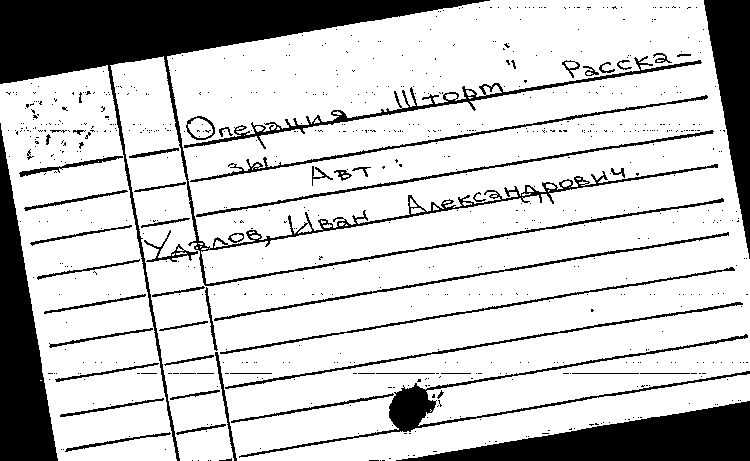 Операция „Шторм". Расска-
зы. Авт.:
Удалов, Иван Александрович.